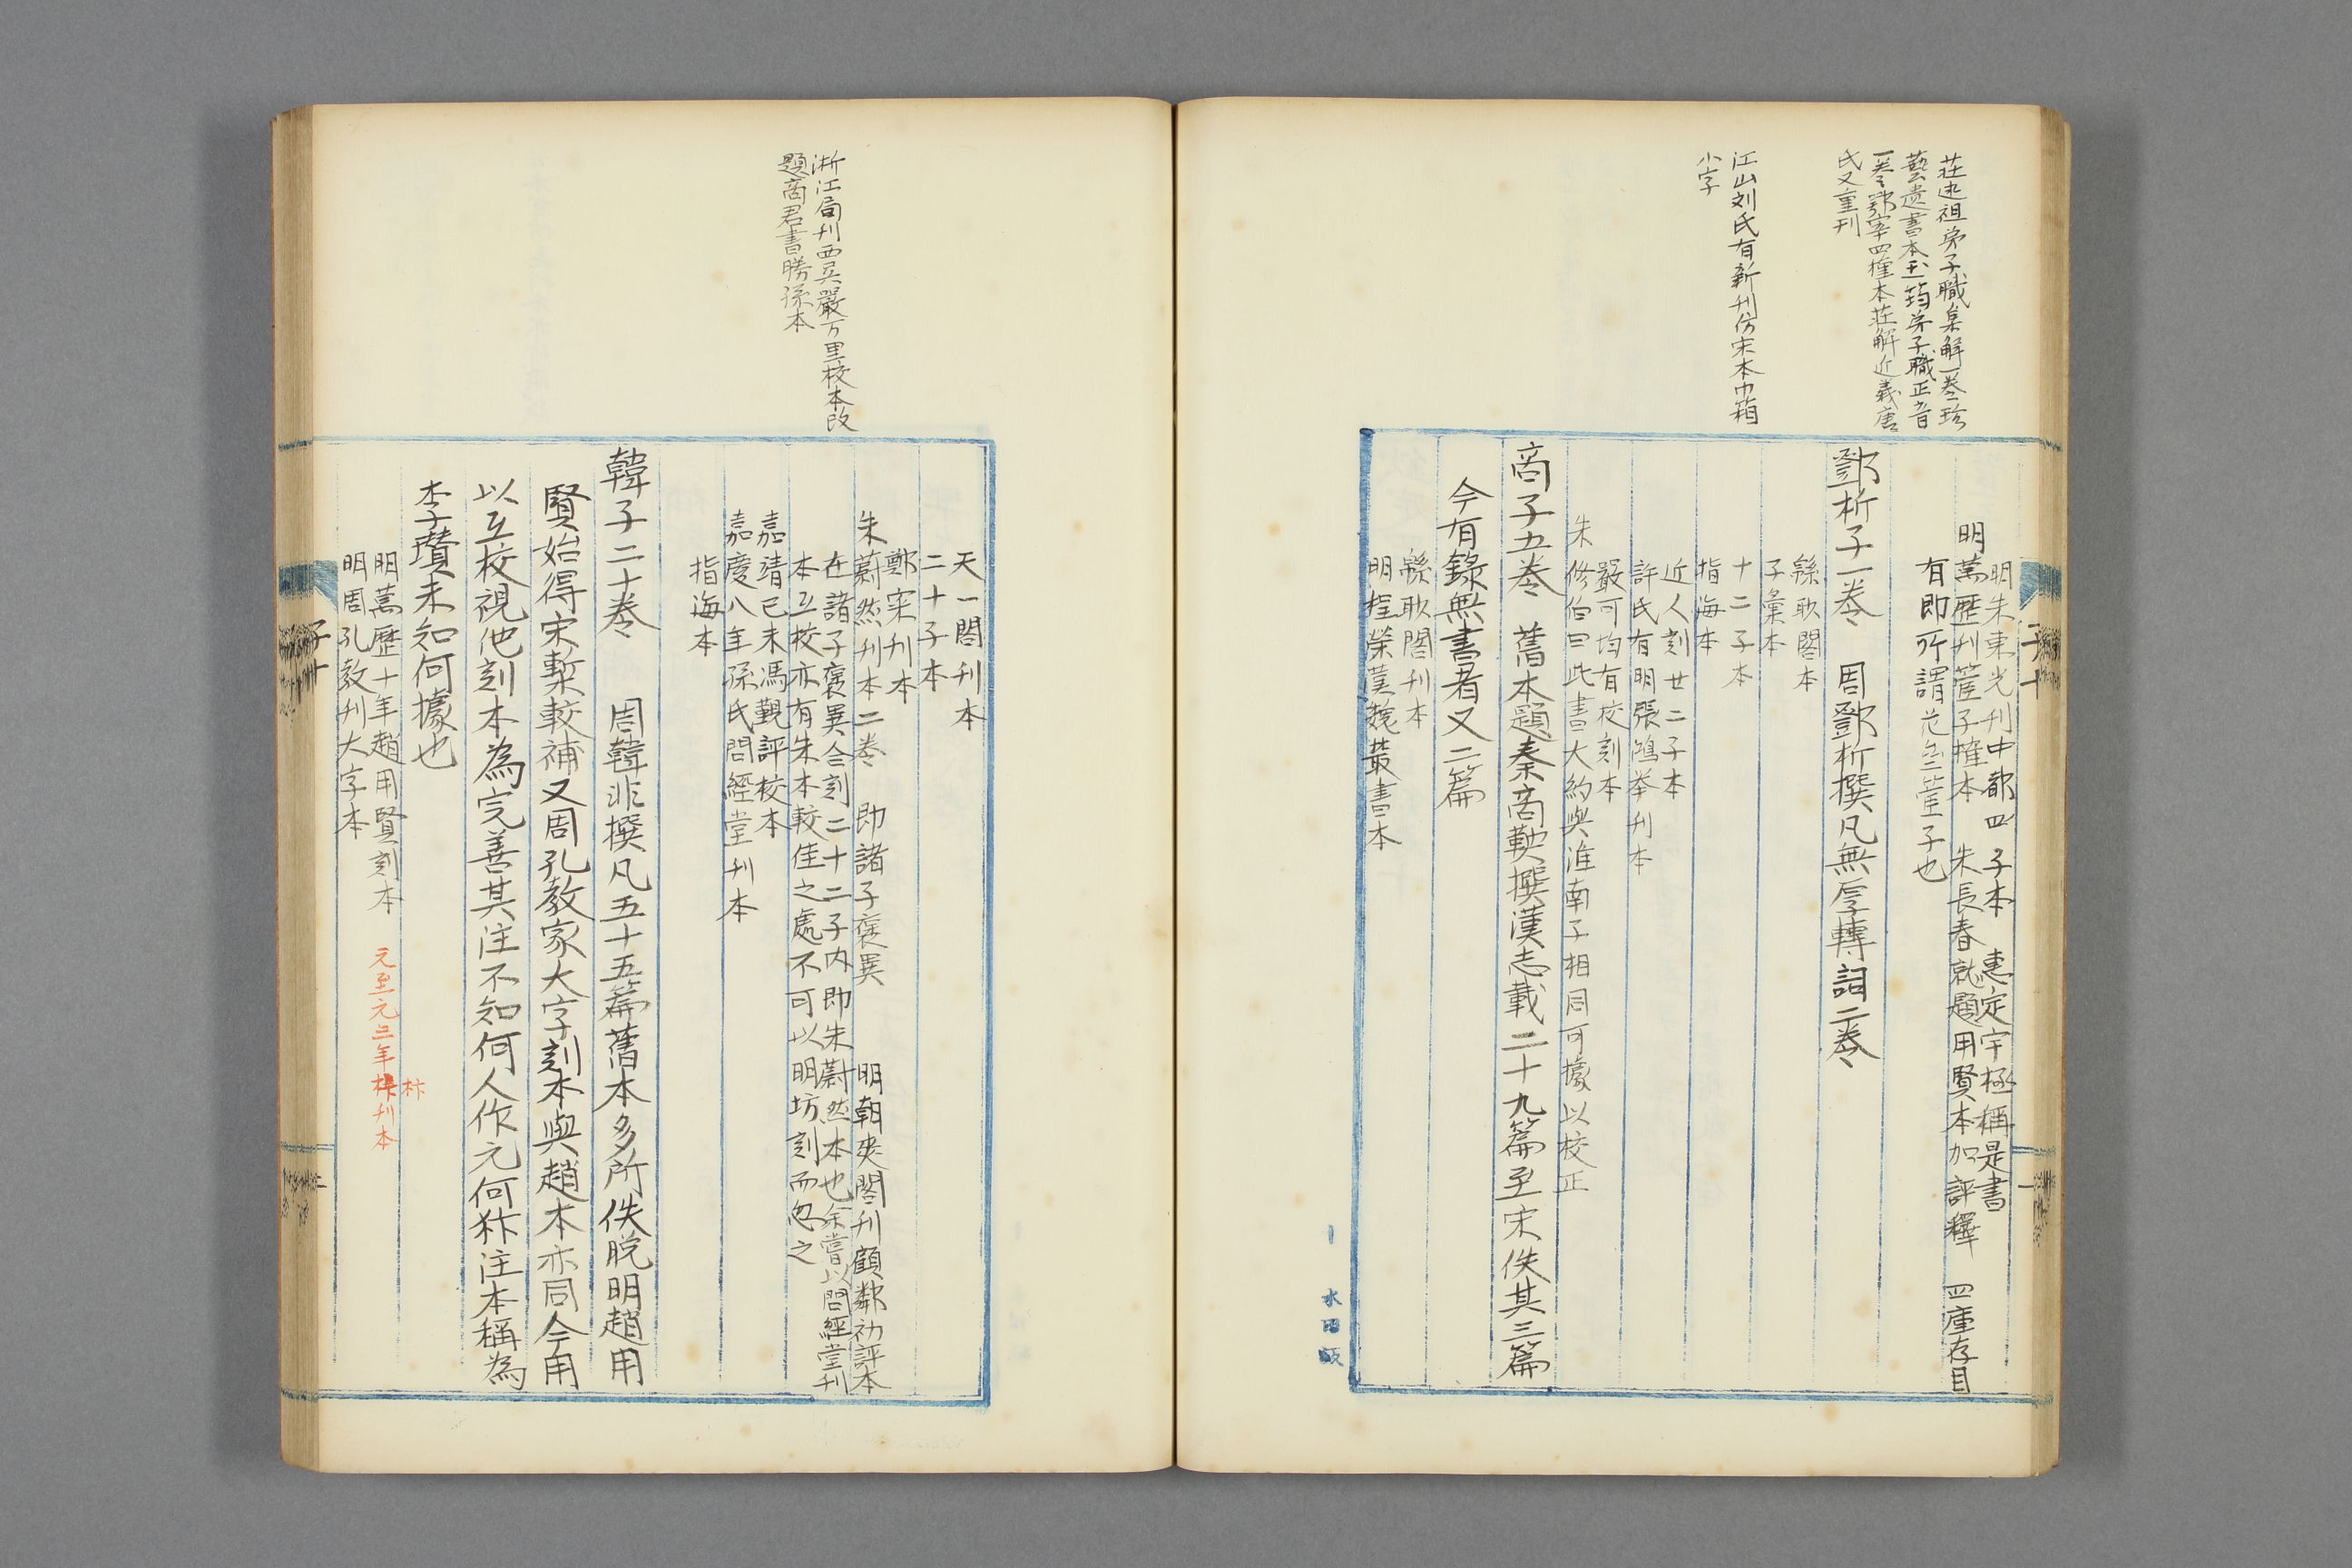 莊述祖弟子職集解一卷珍
藝遺書本王筠弟子職正音
一卷鄂宰四種本莊解近義唐
氏又重刊
江山刘氏有新刊仿宋本巾箱
小字
明朱東光刊中都四子本　惠定宇極稱是書
明萬歷刊管子榷本　朱長春就題用賢本加評釋　四庫存目
有即所謂花㕘管子也
鄧析子一卷　周鄧析撰凡無厚轉詞二卷
緜眇閣本
子彙本
十二子本
指海本
近人刻廿二子本
許氏有明張鴻举刊本
嚴可均有校刻本
朱修伯曰此書大約與淮南子相同可據以校正
商子五卷　舊本題秦商鞅撰漢志載二十九篇至宋佚其三篇
今有錄無書者又二篇
緜眇閣刊本
明程榮漢魏叢書本
水田版
浙江局刊西吴嚴万里校本改
題商君書勝孫本
天一閣刊本
二十子本
鄭寀刊本
朱蔚然刊本二卷　即諸子褒異　明朝爽閣刊顧㵐初評本
在諸子褒異合刻二十二子内即朱蔚然本也余嘗以問經堂刊
本互校亦有朱本較佳之處不可以明坊刻而忽之
嘉靖己未馮覲評校本
嘉慶八年孫氏問經堂刊本
指海本
韓子二十卷　周韓非撰凡五十五篇舊本多所佚脱明趙用
賢始得宋槧較補又周孔教家大字刻本與趙本亦同今用
以互校視他刻本為完善其注不知何人作元何犿注本稱為
李瓚未知何據也
明萬歷十年趙用賢刻本　元至元三年犿刊本
明周孔教刊大字本
子十